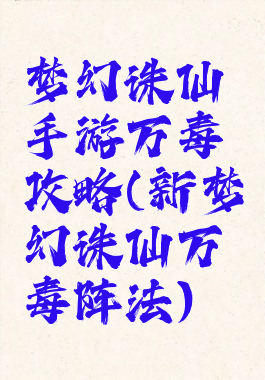 梦幻诛仙
手游万毒
攻略(新梦
幻诛仙万
毒阵法)